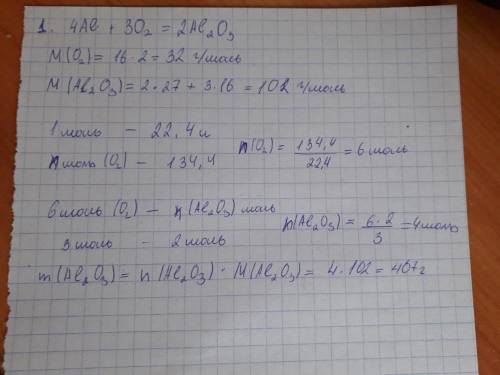 1. 4Al + 3O₂ = 2Al₂O₃
M(O₂) = 16·2 = 32 г/моль
M(Al₂O₃) = 2·27 + 3·16 = 102 г/моль
1 моль - 22,4 л
n моль (O₂) - 134,4
n(O₂) = 134,4/22,4 = 6 моль
6 моль (O₂) - n(Al₂O₃) моль
3 моль - 2 моль
n(Al₂O₃) = 6·2/3 = 4 моль
m(Al₂O₃) = n(Al₂O₃) · M(Al₂O₃) = 4·102 = 407г